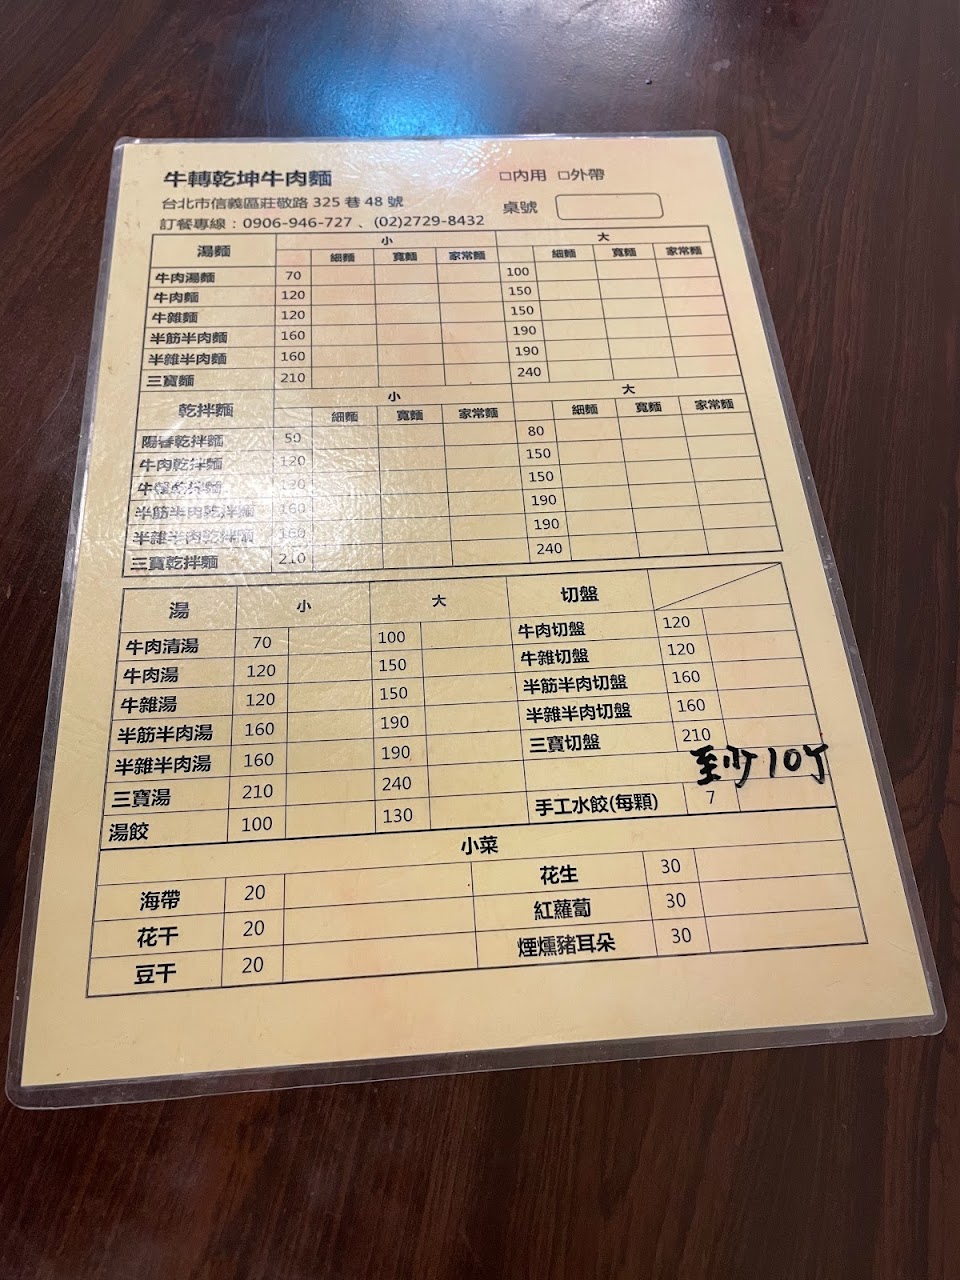 牛轉乾坤牛肉麵 □內用 □外帶
台北市信義區莊敬路 325 巷 48 號
桌號
訂餐專線：0906-946-727 、(02)2729-8432
湯麵 小 大
細麵 寬麵 家常麵 細麵 寬麵 家常麵
牛肉湯麵 70 100
牛肉麵 120 150
牛雜麵 120 150
半筋半肉麵 160 190
半雜半肉麵 160 190
三寶麵 210 240
乾拌麵 小 大
細麵 寬麵 家常麵 細麵 寬麵 家常麵
陽春乾拌麵 50 80
牛肉乾拌麵 120 150
牛雜乾拌麵 120 150
半筋半肉乾拌麵 160 190
半雜半肉乾拌麵 160 190
三寶乾拌麵 210 240
湯 小 大 切盤
牛肉清湯 70 100 牛肉切盤 120
牛肉湯 120 150 牛雜切盤 120
牛雜湯 120 150 半筋半肉切盤 160
半筋半肉湯 160 190 半雜半肉切盤 160
半雜半肉湯 160 190 三寶切盤 210
三寶湯 210 240 至少10丁
湯餃 100 130 手工水餃(每顆) 7
小菜
海帶 20 花生 30
花干 20 紅蘿蔔 30
豆干 20 煙燻豬耳朵 30